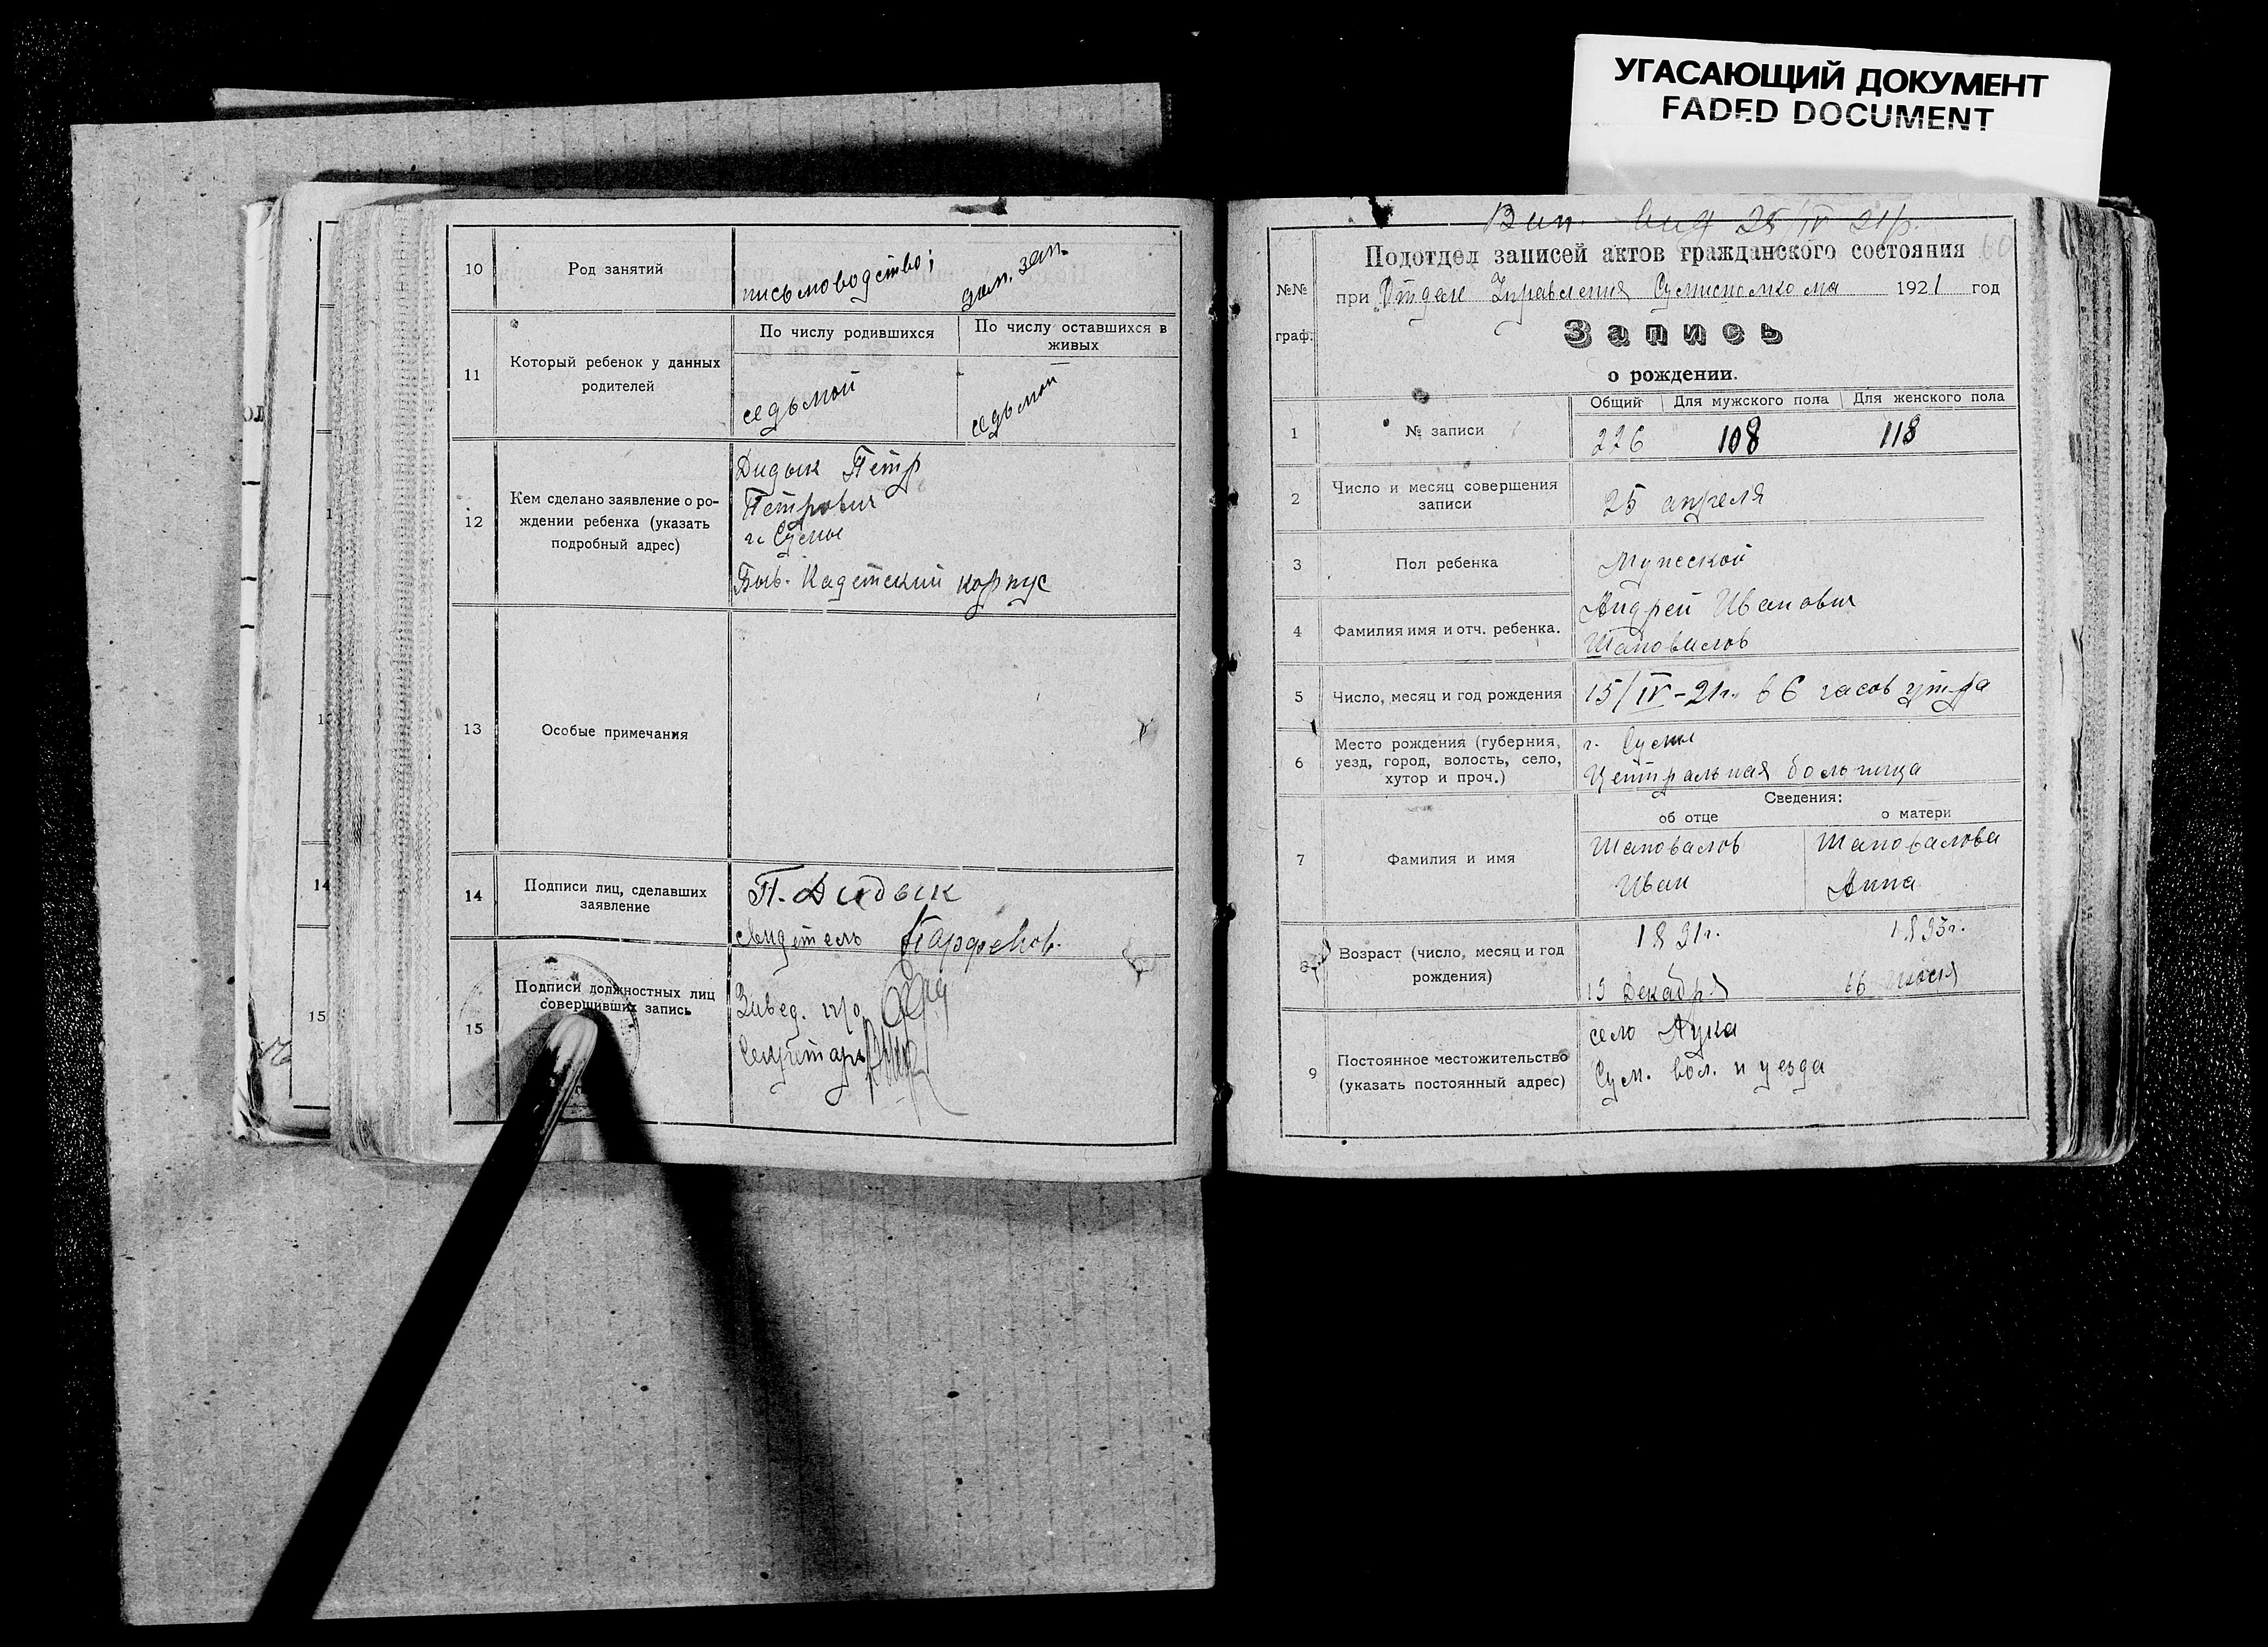 УГАСАЮЩИЙ ДОКУМЕНТ
FADED DOCUMENT
10
Род занятий
письмоводство;
дом. зан.
11
Который ребенок у данных
родителей
По числу родившихся
По числу оставшихся в
живых
седьмой
седьмой
12
Кем сделано заявление о ро-
ждении ребенка (указать
подробный адрес)
Дидык Петр
Петрович
г. Сумы
Быв. Кадетский корпус
13
Особые примечания
14
Подписи лиц, сделавших
заявление
П. Дидык
свидетель Парфенов.
15
Подписи должностных лиц
совершивших запись
Завед. п/о
Секретарь
14
15
Вип. вид 25/IV 21р.
№№
граф.
Подотдел записей актов гражданского состояния
при Отделе Управления Сумисполкома 1921 год
Запись
о рождении.
1
№ записи
Общий
Для мужского пола
Для женского пола
226
108
118
2
Число и месяц совершения
записи
25 апреля
3
Пол ребенка
Мужеской
4
Фамилия имя и отч. ребенка.
Андрей Иванович
Шаповалов
5
Число, месяц и год рождения
15/IV-21г. в 6 часов утра
6
Место рождения (губерния,
уезд, город, волость, село,
хутор и проч.)
г. Сумы
Центральная больница
Сведения:
об отце
о матери
7
Фамилия и имя
Шаповалов
Иван
Шаповалова
Анна
8
Возраст (число, месяц и год
рождения)
1891г.
13 декабря
1893г.
9
Постоянное местожительство
(указать постоянный адрес)
село Лука
Сум. вол. и уезда